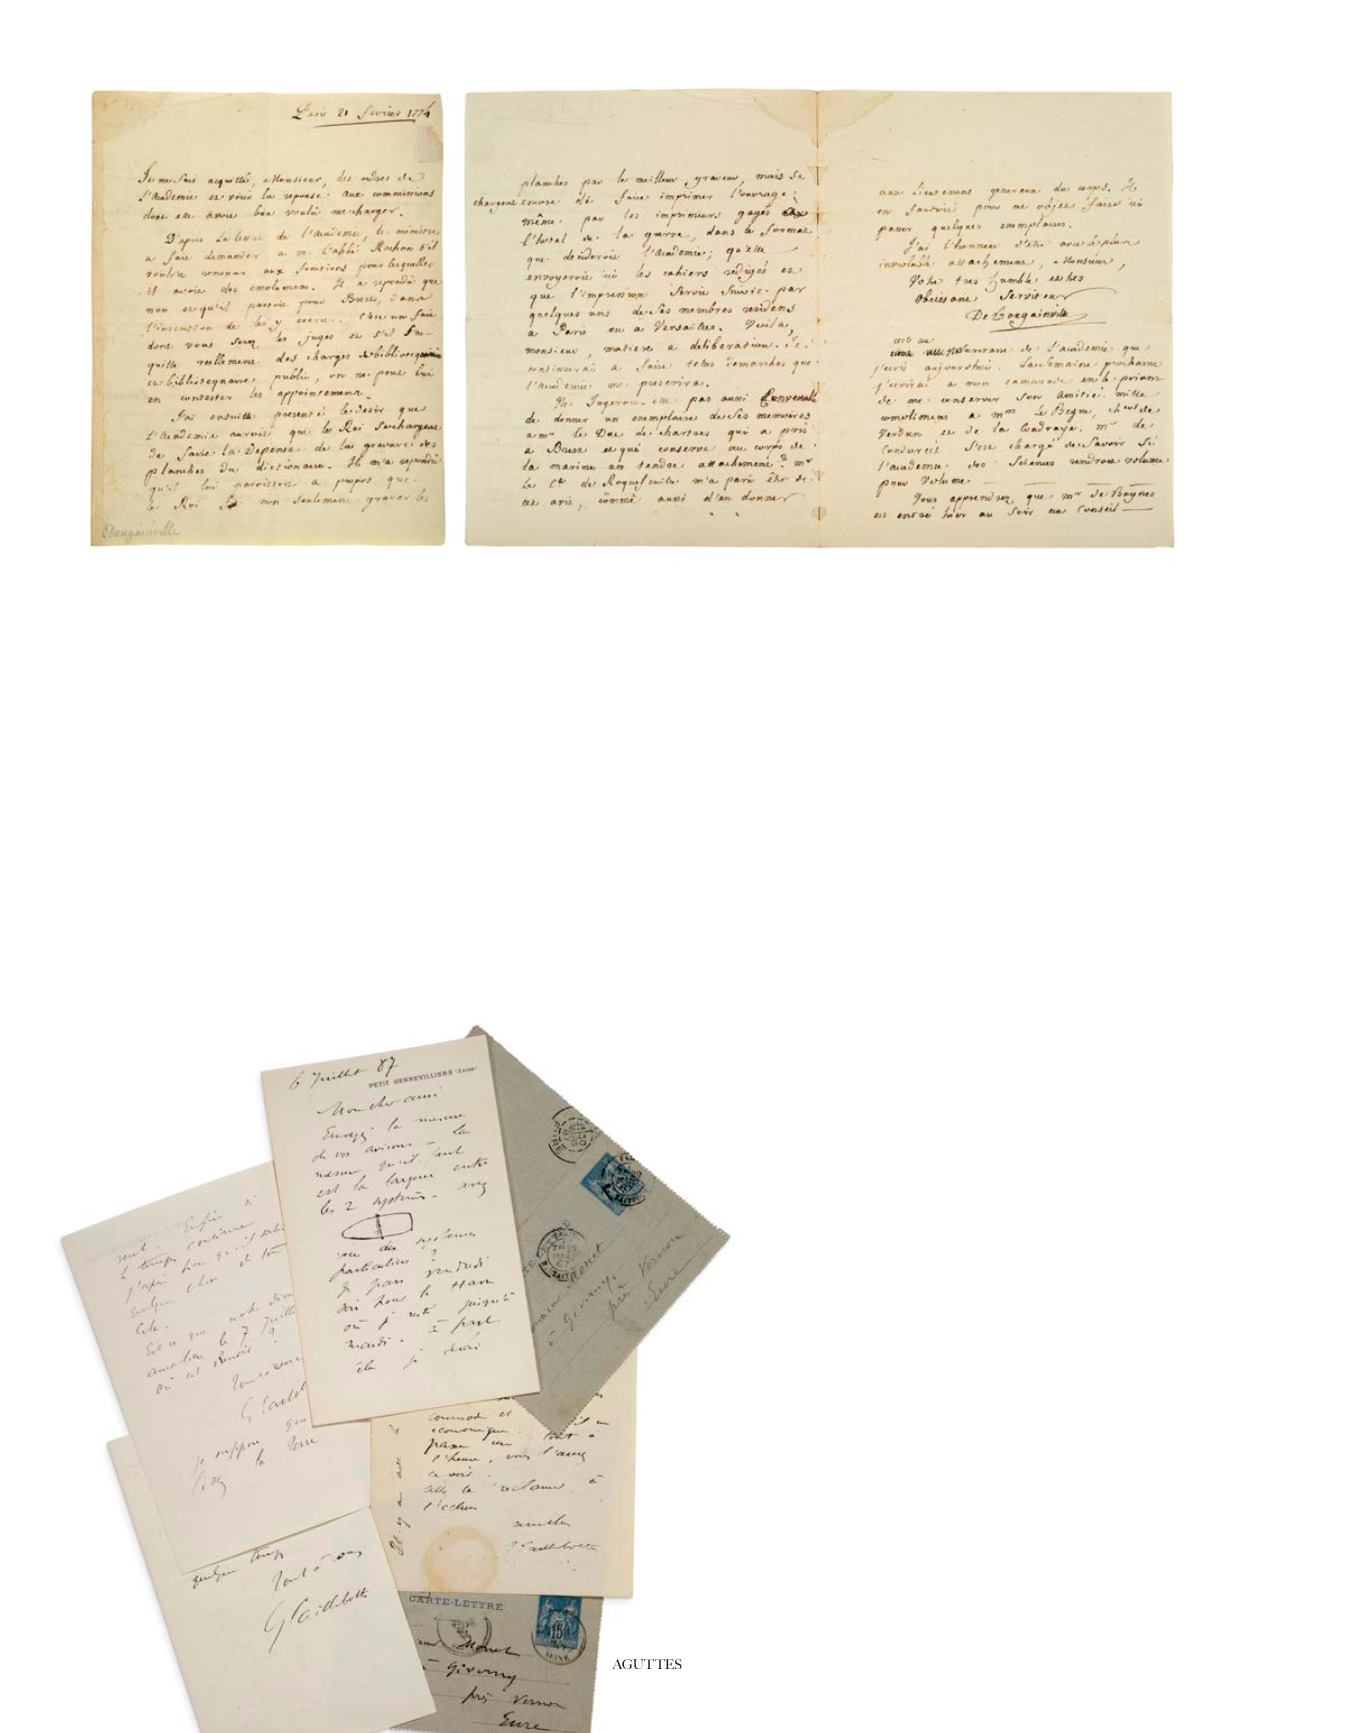 Paris 21 fevrier 1774
Je me suis acquitté, Monsieur, des ordres de
l'Academie et voici la reponse aux commissions
dont elle avoit bien voulu me charger.
D'après la lettre de l'Academie, le ministre
a fait demander a m. l'abbé Rochon s'il
vouloit renoncer aux fonctions pour lesquelles
il avoit des emolumens. Il a repondu que
non et qu'il partoit pour Brest, dans
l'intention de les y exercer. C'est un fait
dont vous serez les juges et s'il s'ac-
quitte reellement des charges de bibliotequaire
et bibliotequaire public, on ne peut lui
en contester les appointemens.
J'ai ensuite presenté le desir que
l'Academie auroit que le Roi se chargeat
de faire la depense de la gravure des
planches du dictionaire. Il m'a repondu
qu'il lui paroissoit a propos que
le Roi non seulement graver les
Bougainville
planches par le meilleur graveur, mais se
chargeat encore de faire imprimer l'ouvrage
même par les imprimeurs gagés
l'hotel de la guerre, dans le format
que decideroit l'Academie; qu'elle
envoyeroit ici les cahiers rediges et
que l'impression seroit suivie par
quelques uns de ses membres residens
a Paris ou a Versailles. Voila,
monsieur, matiere a deliberation. Je
continuerai a faire telles demarches que
l'Academie me prescrira.
Ne jugeroit elle pas aussi convenable
de donner un exemplaire de ses memoires
a mr le Duc de chartres qui a pris
a Brest et qui conserve au corps de
la marine un tendre attachement? mr
le Cte de Roquefeuille m'a paru être de
cet avis, comme aussi d'en donner
aux Lieutenans generaux du corps. Il
en faudroit pour cet objet faire ici
passer quelques exemplaires.
J'ai l'honneur d'être avec le plus
inviolable attachement, Monsieur,
Votre tres humble et tres
obeissant Serviteur
De Bougainville
c'est au
secretaire de l'academie que
j'ecris aujourd'hui. La semaine prochaine
j'ecrirai a mon camarade en le priant
de me conserver son amitié. mille
complimens a mrs Le Begue, chev de
Verdun et de la Coudraye. mr de
Condorcet s'est chargé de savoir si
l'academie des Sciences rendroit volume
pour volume.
Vous apprendrez que mr de Boynes
est entré hier au soir au Conseil
6 Juillet 87
PETIT GENNEVILLIERS (Seine)
Mon cher ami
Envoyez la mesure
de vos avirons - La
mesure qu'il faut
est la largeur entre
les 2 systèmes - avez
vous des systèmes
particuliers?
Je pars vendredi
soir pour le Havre
où je reste jusqu'à
mardi - à part
cela je serai
seul. Enfin si
le temps continue
j'espère bien qu'il
quelque chose de tout
cela.
Est ce que notre
le 7 Juillet
où est Renoir?
Tout à vous
G Caill
je suppose que
lisez la Terre
à Giverny
près Vernon
Eure
commode et
économique.
tout à
l'heure, vous l'avez
allez le réclamer à
G Caillebotte
Il y a
quelque temps
Tout à vous
G Caillebotte
CARTE-LETTRE
15
Monet
à Giverny
près Vernon
Eure
AGUTTES